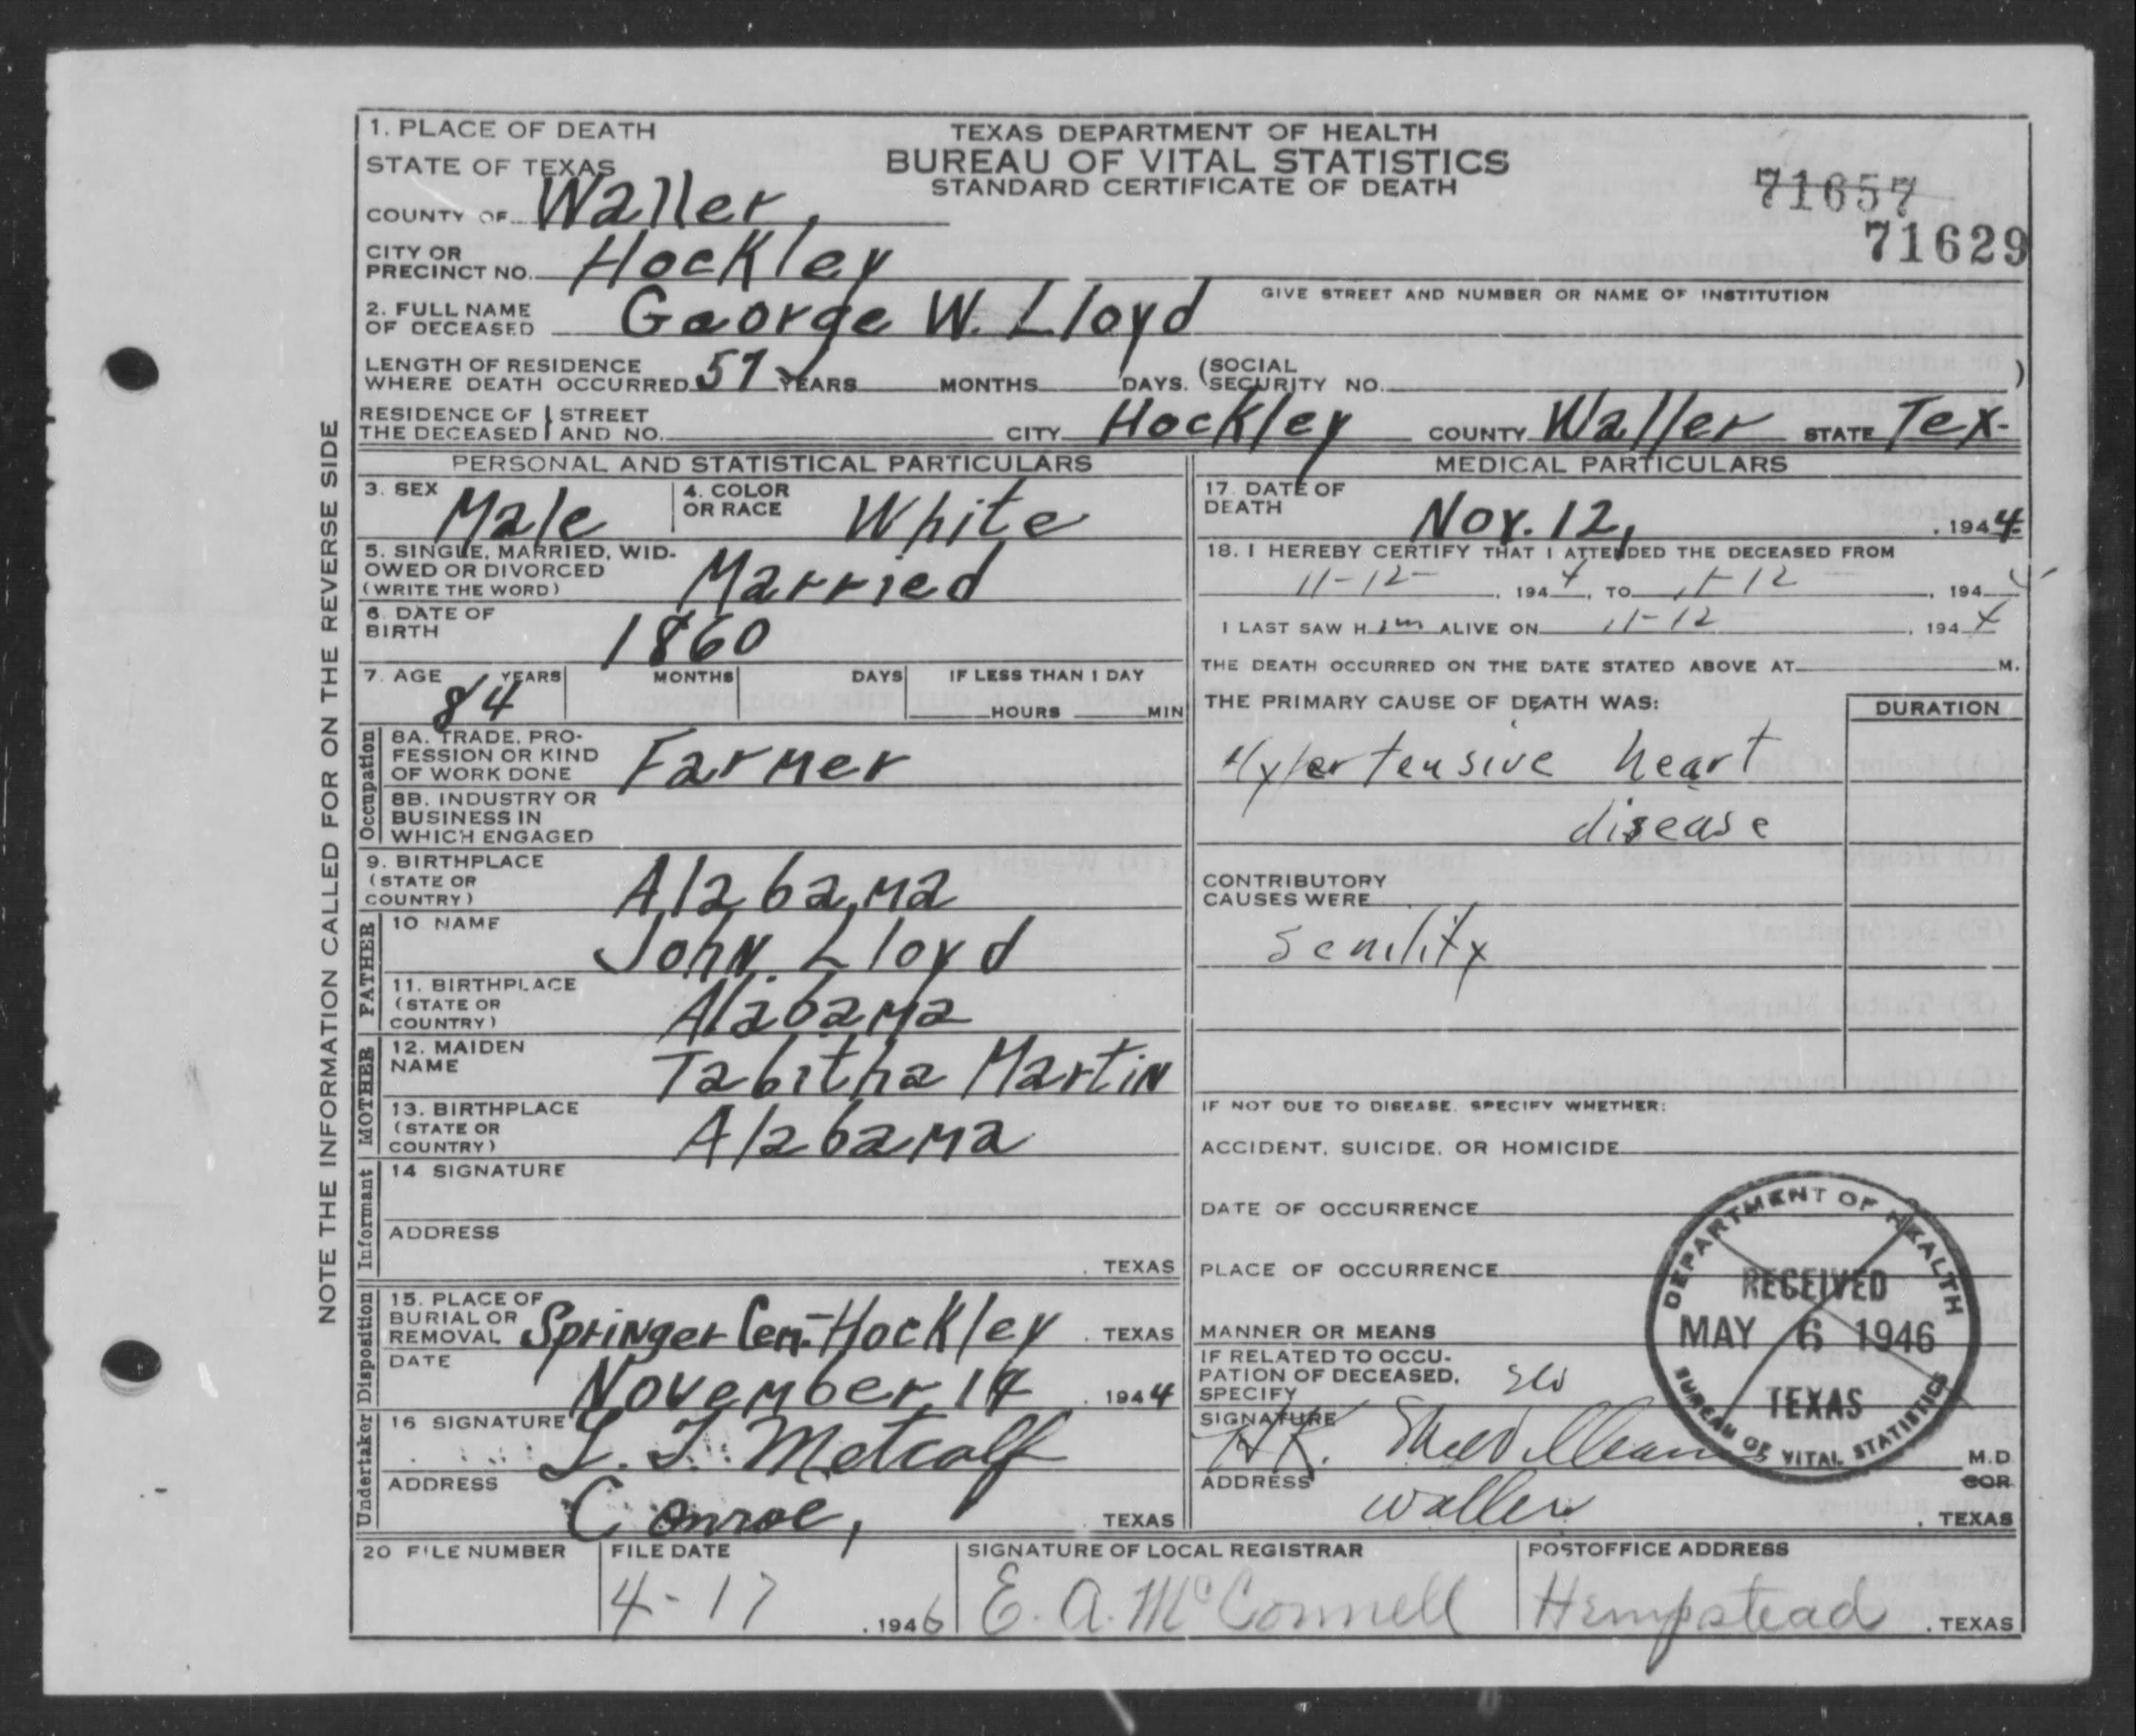 1. PLACE OF DEATH
STATE OF TEXAS
COUNTY OF Waller,
CITY OR PRECINCT NO. Hockley
TEXAS DEPARTMENT OF HEALTH
BUREAU OF VITAL STATISTICS
STANDARD CERTIFICATE OF DEATH
71657
71629
GIVE STREET AND NUMBER OR NAME OF INSTITUTION
2. FULL NAME OF DECEASED George W. Lloyd
LENGTH OF RESIDENCE WHERE DEATH OCCURRED 57 YEARS MONTHS DAYS. (SOCIAL SECURITY NO. )
RESIDENCE OF THE DECEASED STREET AND NO. CITY Hockley COUNTY Waller STATE Tex.
NOTE THE INFORMATION CALLED FOR ON THE REVERSE SIDE
PERSONAL AND STATISTICAL PARTICULARS
3. SEX Male 4. COLOR OR RACE White
5. SINGLE, MARRIED, WIDOWED OR DIVORCED (WRITE THE WORD) Married
6. DATE OF BIRTH 1860
7. AGE 84 YEARS MONTHS DAYS IF LESS THAN 1 DAY HOURS MIN
Occupation
8A. TRADE, PROFESSION OR KIND OF WORK DONE Farmer
8B. INDUSTRY OR BUSINESS IN WHICH ENGAGED
9. BIRTHPLACE (STATE OR COUNTRY) Alabama
FATHER
10 NAME John Lloyd
11. BIRTHPLACE (STATE OR COUNTRY) Alabama
MOTHER
12. MAIDEN NAME Tabitha Martin
13. BIRTHPLACE (STATE OR COUNTRY) Alabama
Informant
14 SIGNATURE
ADDRESS . TEXAS
Disposition
15. PLACE OF BURIAL OR REMOVAL Springer Cem.-Hockley . TEXAS
DATE November 14 . 1944
Undertaker
16 SIGNATURE L. T. Metcalf
ADDRESS Conroe, TEXAS
MEDICAL PARTICULARS
17. DATE OF DEATH Nov. 12, . 1944
18. I HEREBY CERTIFY THAT I ATTENDED THE DECEASED FROM
11-12- , 1944, TO 11-12 , 1944
I LAST SAW Him ALIVE ON 11-12 , 1944
THE DEATH OCCURRED ON THE DATE STATED ABOVE AT M.
THE PRIMARY CAUSE OF DEATH WAS: DURATION
Hypertensive heart
disease
CONTRIBUTORY CAUSES WERE
Senility
IF NOT DUE TO DISEASE, SPECIFY WHETHER:
ACCIDENT, SUICIDE, OR HOMICIDE
DATE OF OCCURRENCE
PLACE OF OCCURRENCE
MANNER OR MEANS
IF RELATED TO OCCUPATION OF DECEASED, SPECIFY
SIGNATURE H.K. M.D.
COR
ADDRESS Waller . TEXAS
DEPARTMENT OF HEALTH
RECEIVED
MAY 6 1946
TEXAS
BUREAU OF VITAL STATISTICS
20 FILE NUMBER
FILE DATE 4-17 , 1946
SIGNATURE OF LOCAL REGISTRAR E. A. McConnell
POSTOFFICE ADDRESS Hempstead . TEXAS